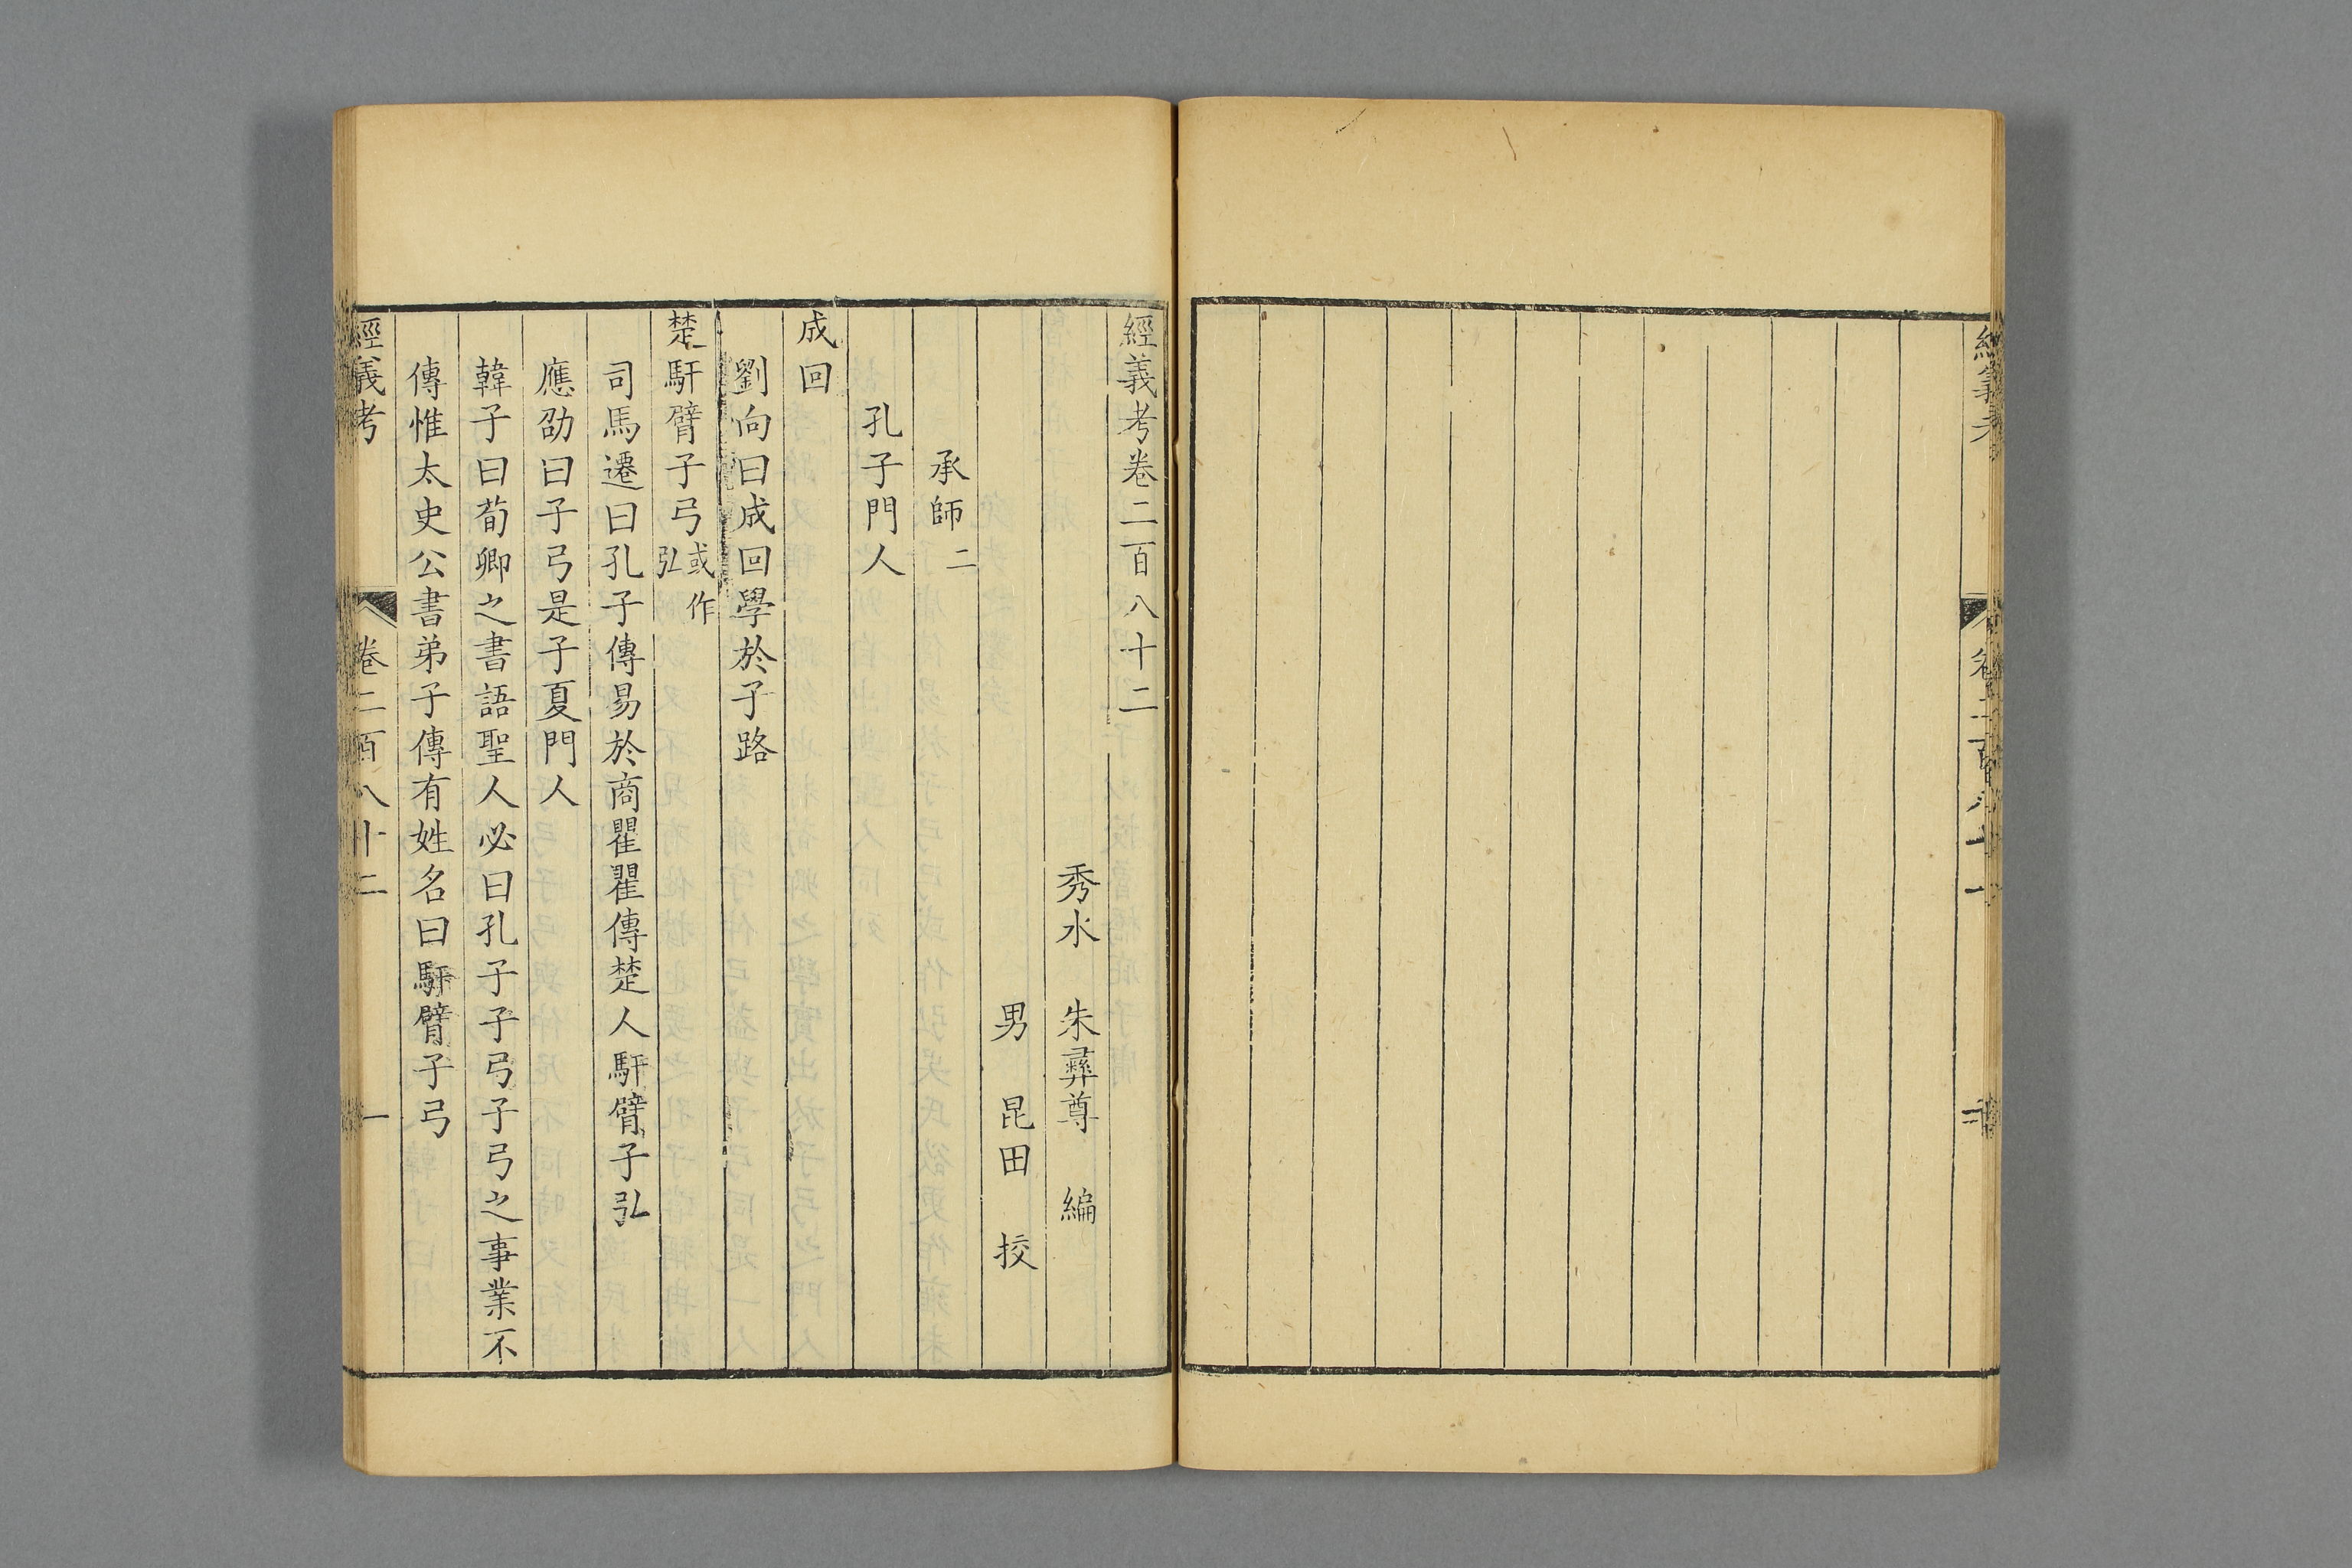 經義考
經義考卷二百八十二
秀水 朱彝尊 編
男 昆田 挍
承師二
孔子門人
成回
劉向曰成回學於子路
楚馯臂子弓或作弘
司馬遷曰孔子傳易於商瞿瞿傳楚人馯臂子弘
應劭曰子弓是子夏門人
韓子曰荀卿之書語聖人必曰孔子子弓子弓之事業不
傳惟太史公書弟子傳有姓名曰馯臂子弓
經義考 卷二百八十二 一